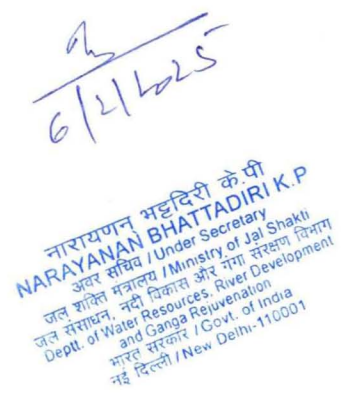 6/2/2025
नारायणन् भट्टदिरी के.पी
NARAYANAN BHATTADIRI K.P
अवर सचिव / Under Secretary
जल शक्ति मंत्रालय / Ministry of Jal Shakti
जल संसाधन, नदी विकास और गंगा संरक्षण विभाग
Deptt. of Water Resources, River Development
and Ganga Rejuvenation
भारत सरकार / Govt. of India
नई दिल्ली / New Delhi-110001